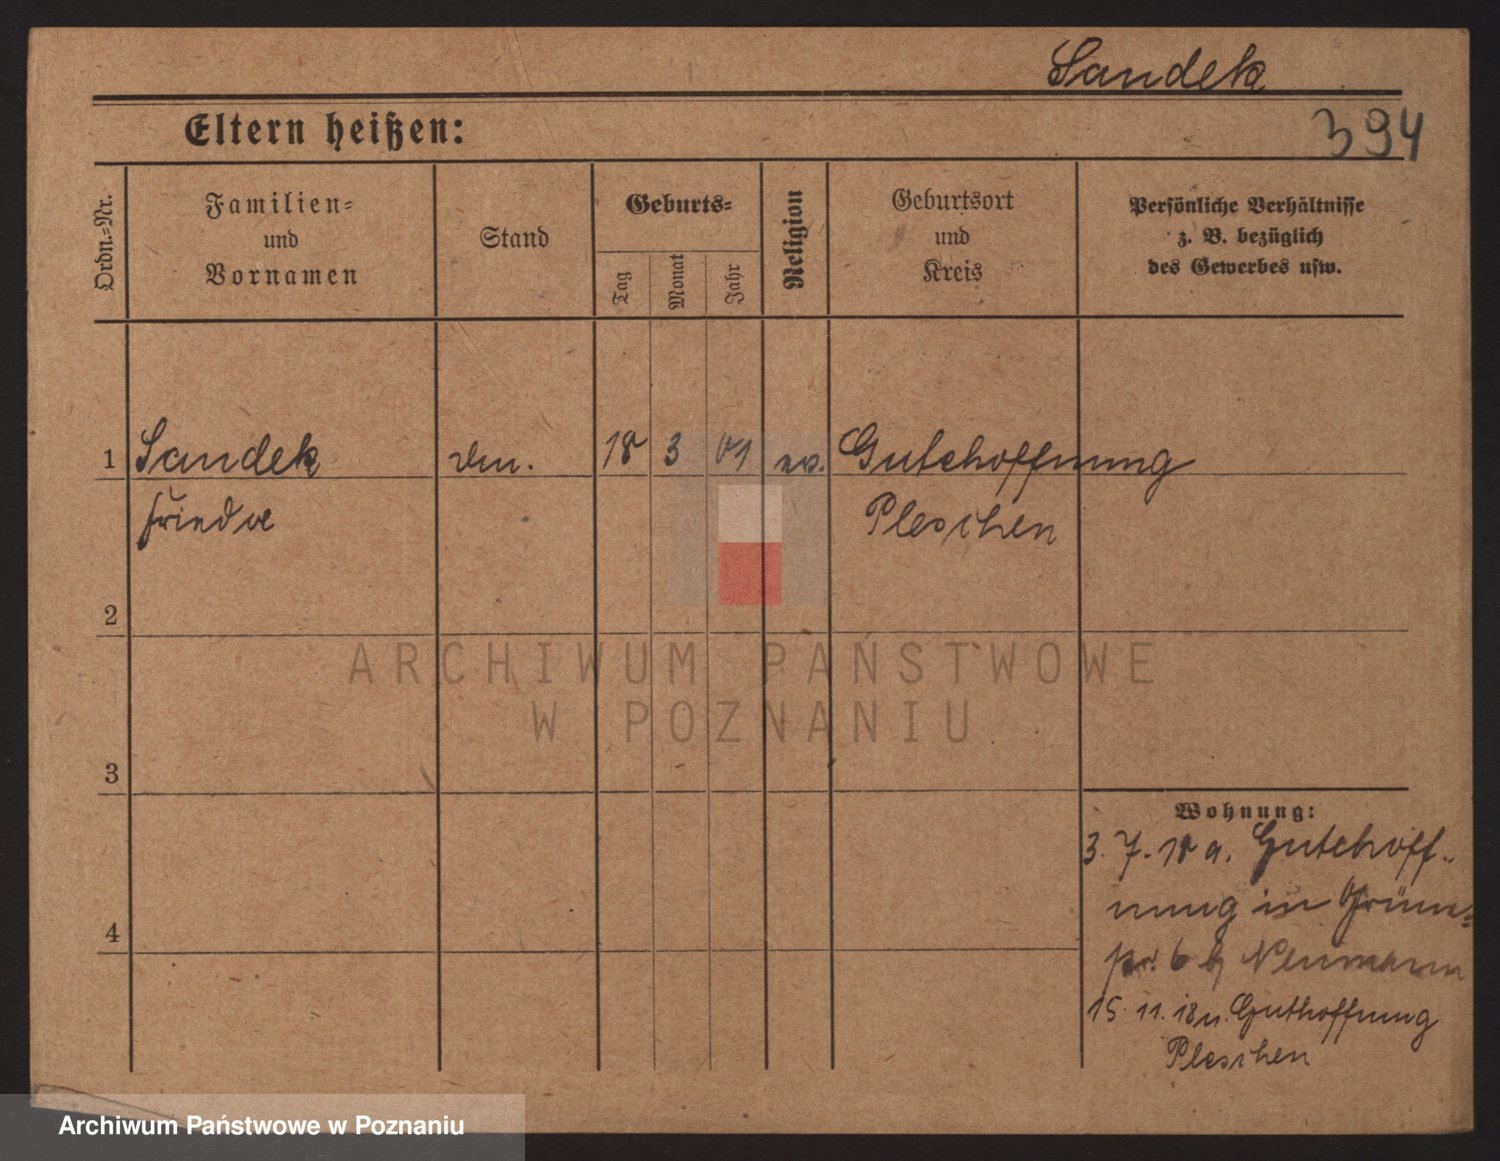 Sandek
394
Eltern heißen:
Ordn.-Nr.
Familien-
und
Vornamen
Stand
Geburts-
Tag
Monat
Jahr
Religion
Geburtsort
und
Kreis
Persönliche Verhältnisse
z. B. bezüglich
des Gewerbes usw.
1 Sandek 18 3 01 ev. Gutehoffnung
Frieda Pleschen
2
3
4
Wohnung:
3. 7. 18 a. Gutehoff-
nung in
6 b/ Neumann
15. 11. 18 n. Guthoffnung
Pleschen
ARCHIWUM PAŃSTWOWE
W POZNANIU
Archiwum Państwowe w Poznaniu